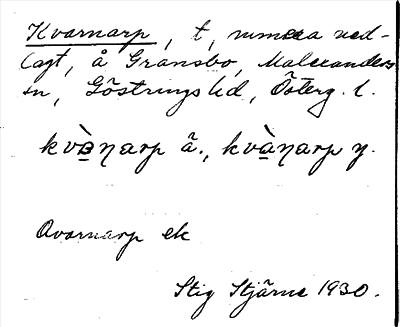 Kvarnarp, t, numera ned-
lagt, å Gransbo, Malexanders
sn, Göstrings hd, Österg. l.
kvànarp ä., kvànarp y.
Qvarnarp ek
Stig Stjärne 1930.